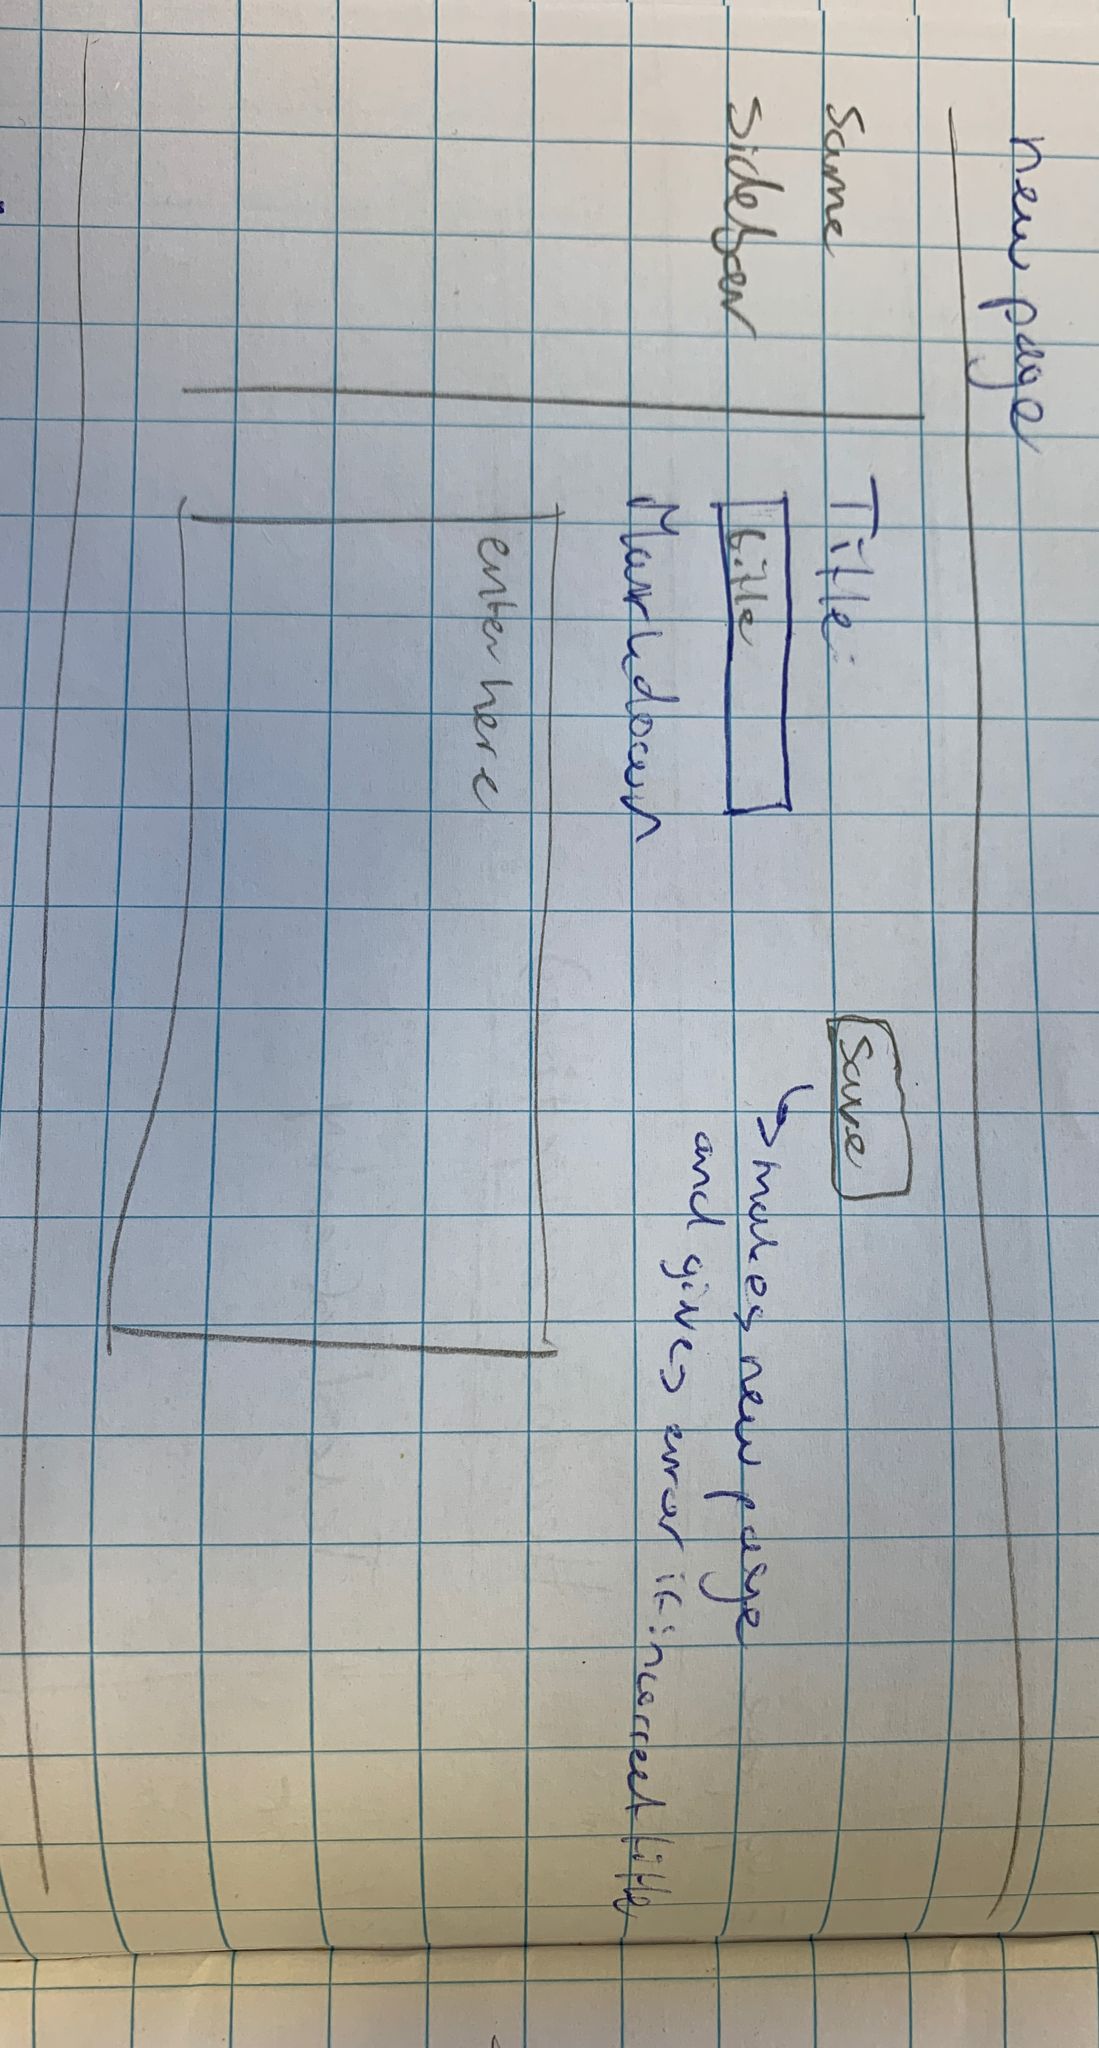 new page
Same
sidebar
Title:
title
Markdown
enter here
Save
↳ makes new page
and gives error if incorrect title